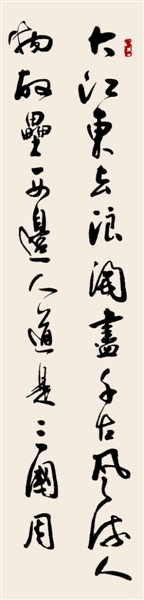 大江東去浪淘盡千古風流人
物故壘西邊人道是三國周